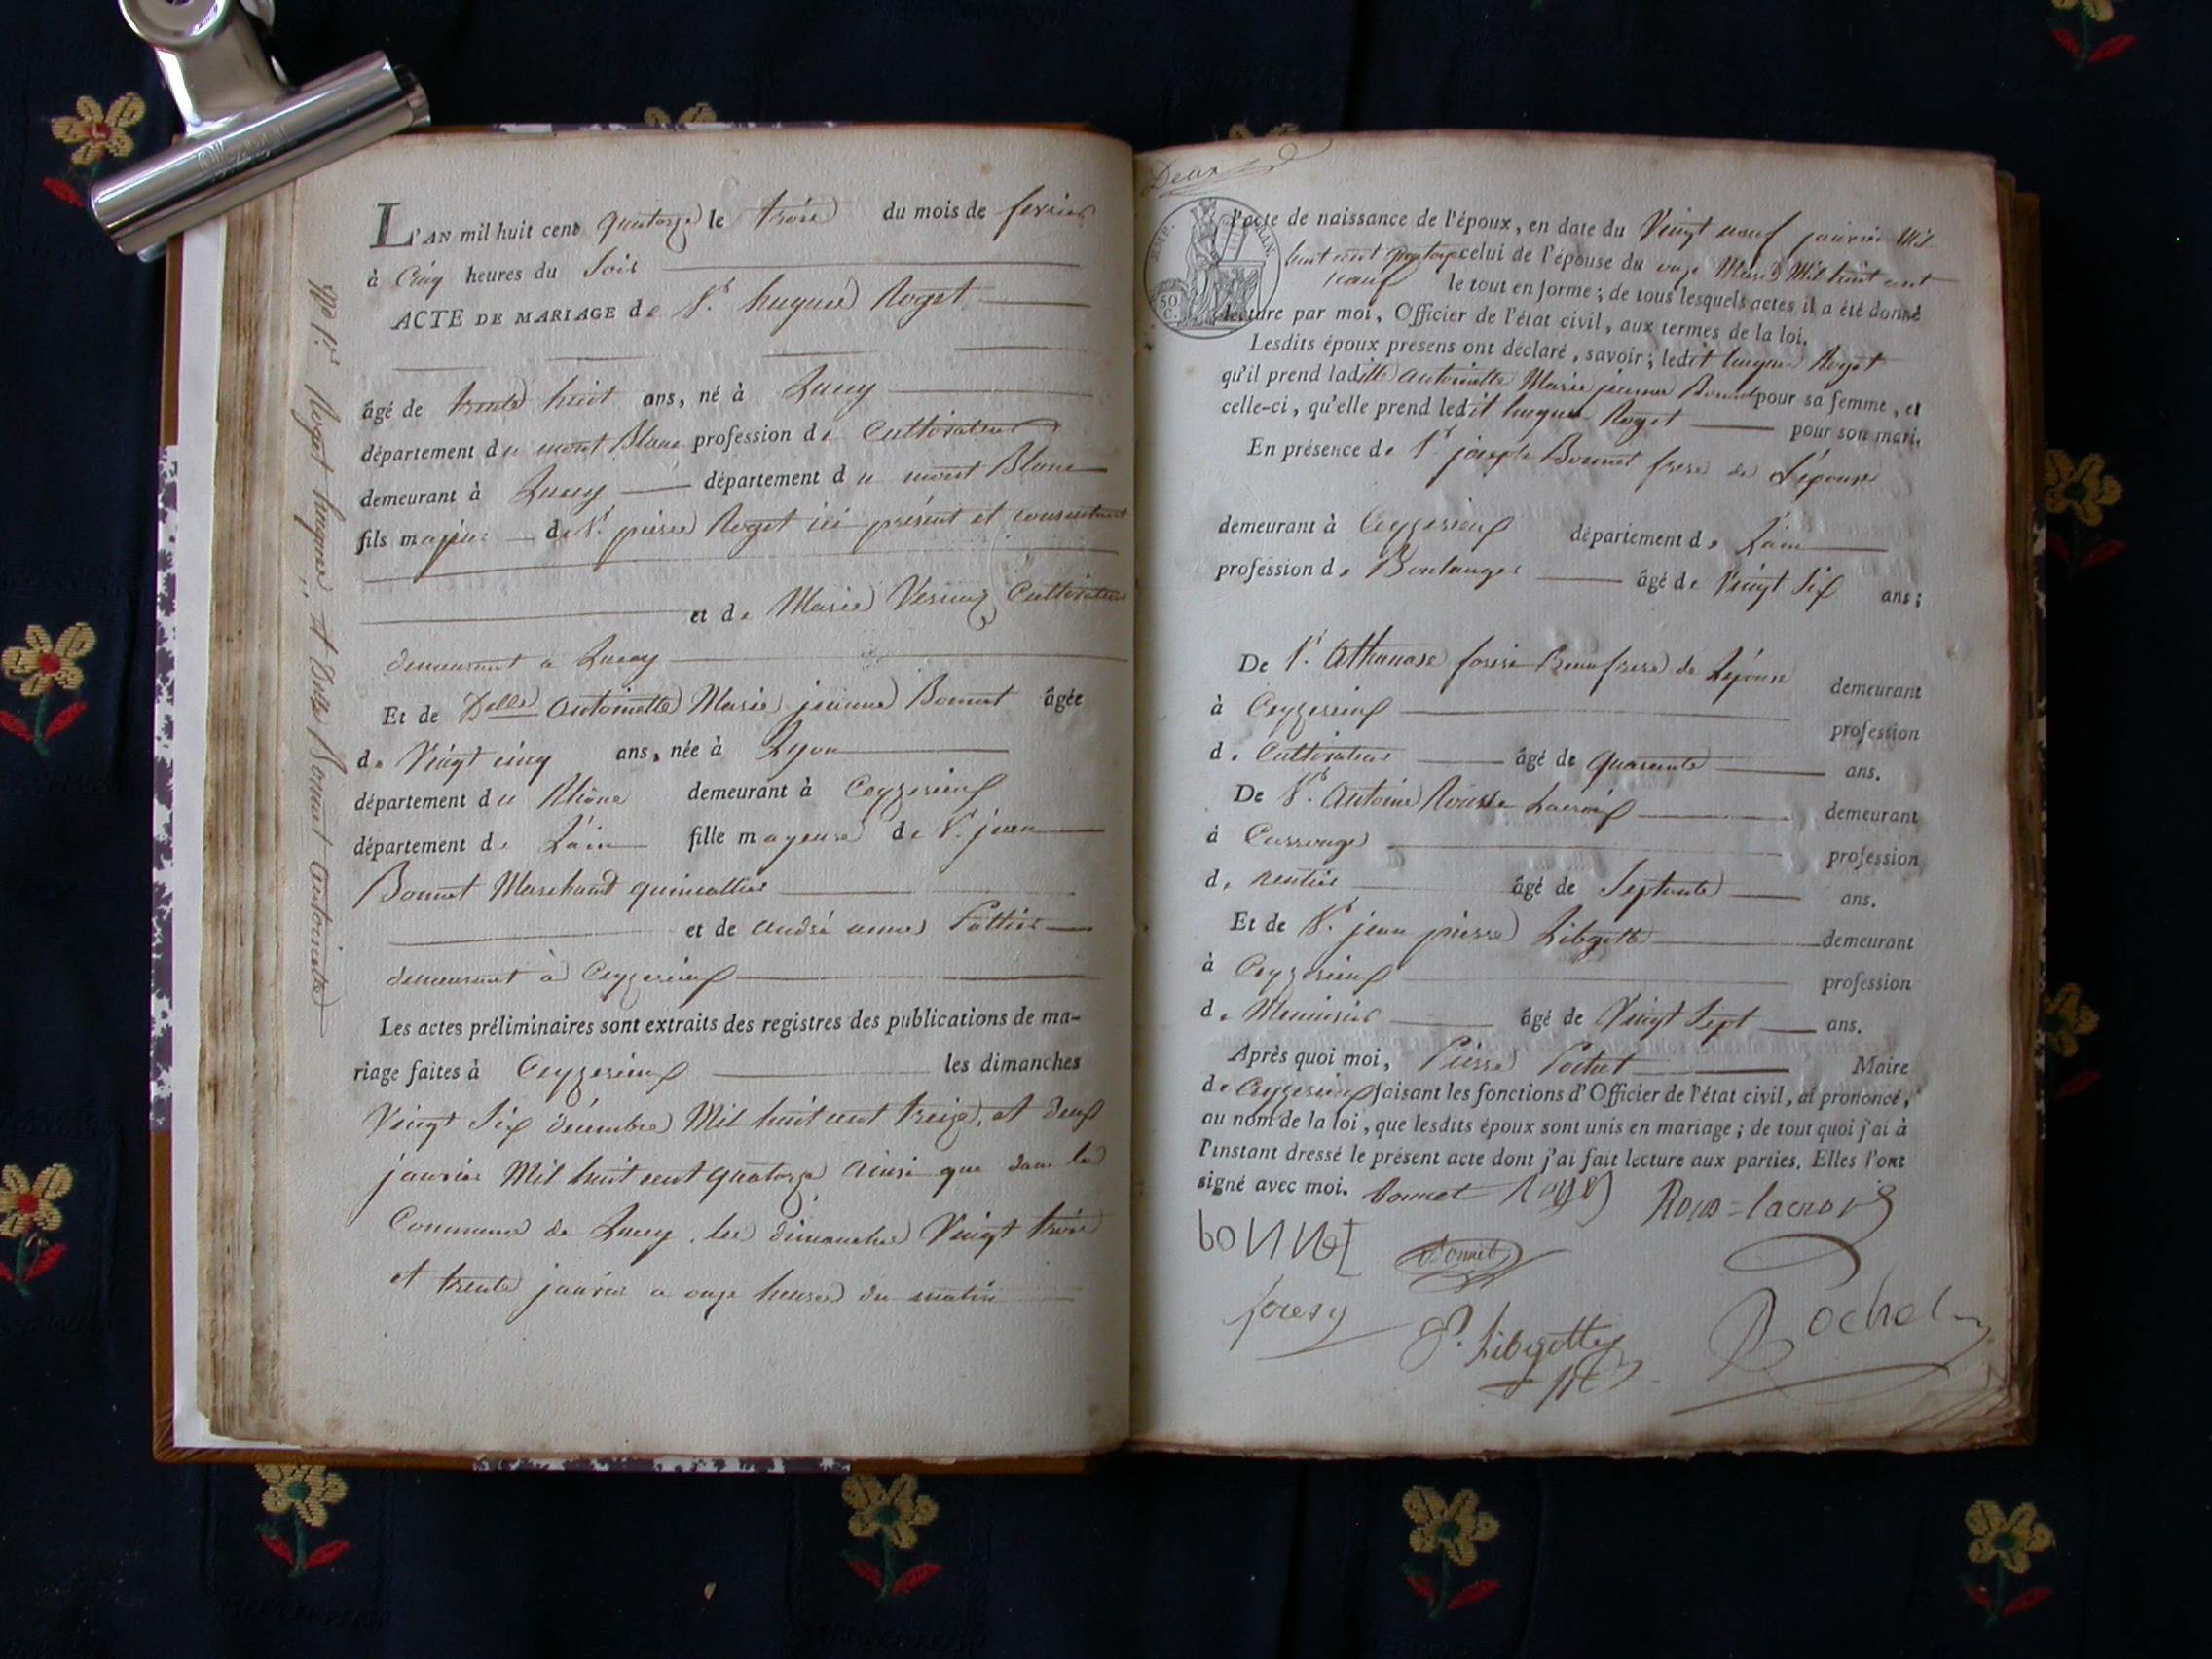 L'AN mil huit cent quatorze le trois du mois de fevrier
à Cinq heures du soir
ACTE DE MARIAGE de Sr. hugues Roget
âgé de trente huit ans, né à Lucey
département du mont Blanc profession de Cultivateur
demeurant à Lucey département du mont Blanc
fils majeur de Sr. pierre Roget ici présent et consentant
et de Marie Vernaz Cultivateurs
demeurant a Lucey
Et de Delle Antoinette Marie jeanne Bonnet âgée
de Vingt cinq ans, née à Lyon
département du Rhône demeurant à Ceyzerieux
département de L'ain fille mayeure de Sr. jean
Bonnet Marchand quincallier
et de andré anne
demeurant à Ceyzerieux
Les actes préliminaires sont extraits des registres des publications de ma-
riage faites à Ceyzerieux les dimanches
Vingt Six décembre Mil huit cent treize, et deux
janvier Mil huit cent quatorze ainsi que dans la
Commune de Lucey les dimanches Vingt trois
et trente janvier a onze heures du matin
No 1er Roget hugues, et Delle Bonnet Antoinette
Deux
50 C.
l'acte de naissance de l'époux, en date du Vingt neuf janvier Mil
huit cent quatorze celui de l'épouse du onze Mars Mil huit cent
neuf le tout en forme; de tous lesquels actes il a été donné
lecture par moi, Officier de l'état civil, aux termes de la loi.
Lesdits époux présens ont déclaré, savoir; ledit hugues Roget
qu'il prend ladite Antoinette Marie jeanne Bonnet pour sa femme, et
celle-ci, qu'elle prend ledit hugues Roget pour son mari.
En présence de Sr joseph Bonnet frere de L'épouse
demeurant à Ceyzerieux département de L'ain
profession de Boulanger âgé de Vingt Six ans;
De Sr. Athanase Beaufrere de Lépouse demeurant
à Ceyzerieux profession
de Cultivateur âgé de quarante ans.
De Sr. Antoine Lacroix demeurant
à profession
de rentier âgé de Septante ans.
Et de Sr. jean pierre demeurant
à Ceyzerieux profession
de Menuisier âgé de Vingt Sept ans.
Après quoi moi, Pierre Pochet Maire
de Ceyzerieux faisant les fonctions d'Officier de l'état civil, ai prononcé,
au nom de la loi, que lesdits époux sont unis en mariage; de tout quoi j'ai à
l'instant dressé le présent acte dont j'ai fait lecture aux parties. Elles l'ont
signé avec moi. bonnet Roux=lacroix
bonnet Bonnet